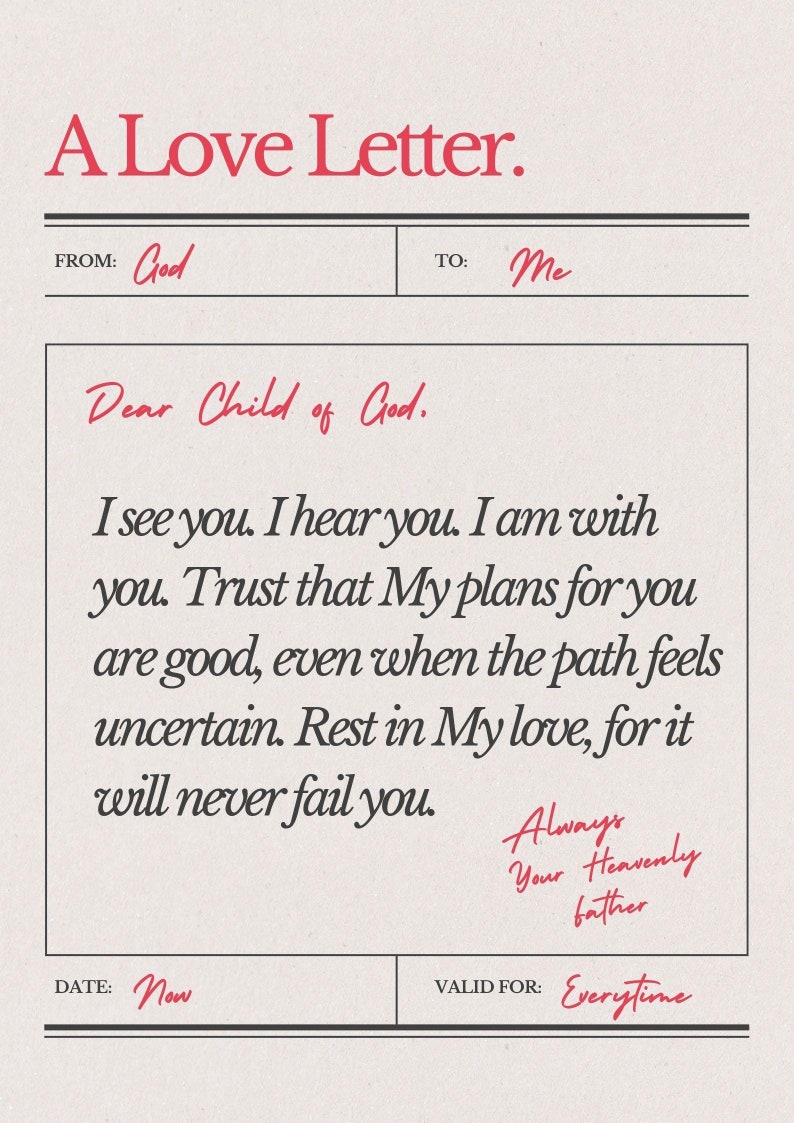 A Love Letter.
FROM: God
TO: Me
Dear Child of God,
I see you. I hear you. I am with
you. Trust that My plans for you
are good, even when the path feels
uncertain. Rest in My love, for it
will never fail you.
Always
Your Heavenly
father
DATE: Now
VALID FOR: Everytime